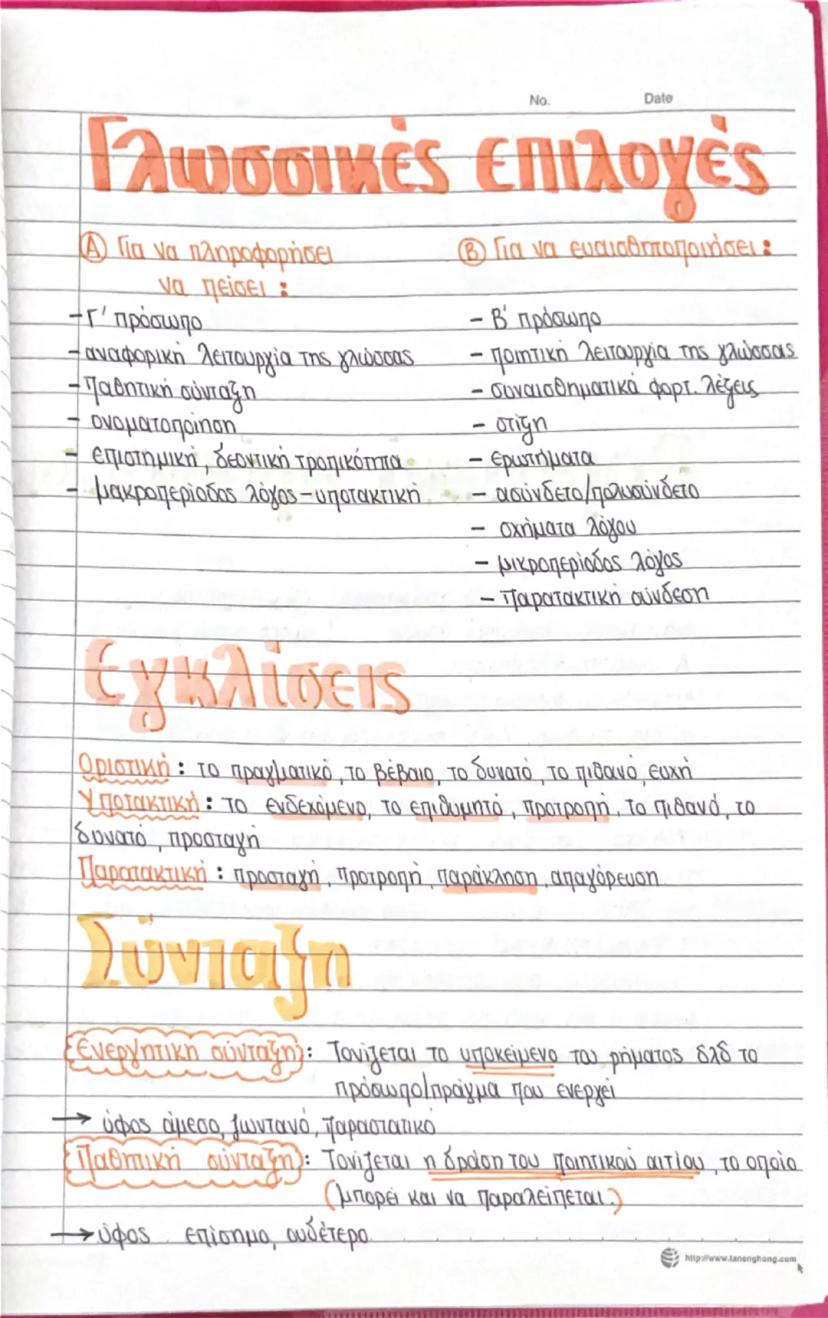 No. Date
Γλωσσικές επιλογές
Α Για να πληροφορήσει
να πείσει :
- Γ' πρόσωπο
- αναφορική λειτουργία της γλώσσας
- Παθητική σύνταξη
- ονοματοποίηση
- επιστημική, δεοντική τροπικότητα
- μακροπερίοδος λόγος - υποτακτική
Β Για να ευαισθητοποιήσει :
- Β' πρόσωπο
- ποιητική λειτουργία της γλώσσας
- συναισθηματικά φορτ. λέξεις
- στίξη
- ερωτήματα
- ασύνδετο/πολυσύνδετο
- σχήματα λόγου
- μικροπερίοδος λόγος
- Παρατακτική σύνδεση
Εγκλίσεις
Οριστική : το πραγματικό, το βέβαιο, το δυνατό, το πιθανό, ευχή
Υποτακτική : το ενδεχόμενο, το επιθυμητό, προτροπή, το πιθανό, το
δυνατό, προσταγή
Παρατακτική : προσταγή, προτροπή, παράκληση, απαγόρευση
Σύνταξη
Ενεργητική σύνταξη : Τονίζεται το υποκείμενο του ρήματος δλδ το
πρόσωπο/πράγμα που ενεργεί
→ ύφος άμεσο, ζωντανό, παραστατικό
Παθητική σύνταξη : Τονίζεται η δράση του ποιητικού αιτίου, το οποίο
(μπορεί και να παραλείπεται.)
→ ύφος επίσημο, ουδέτερο
http://www.tanenghong.com